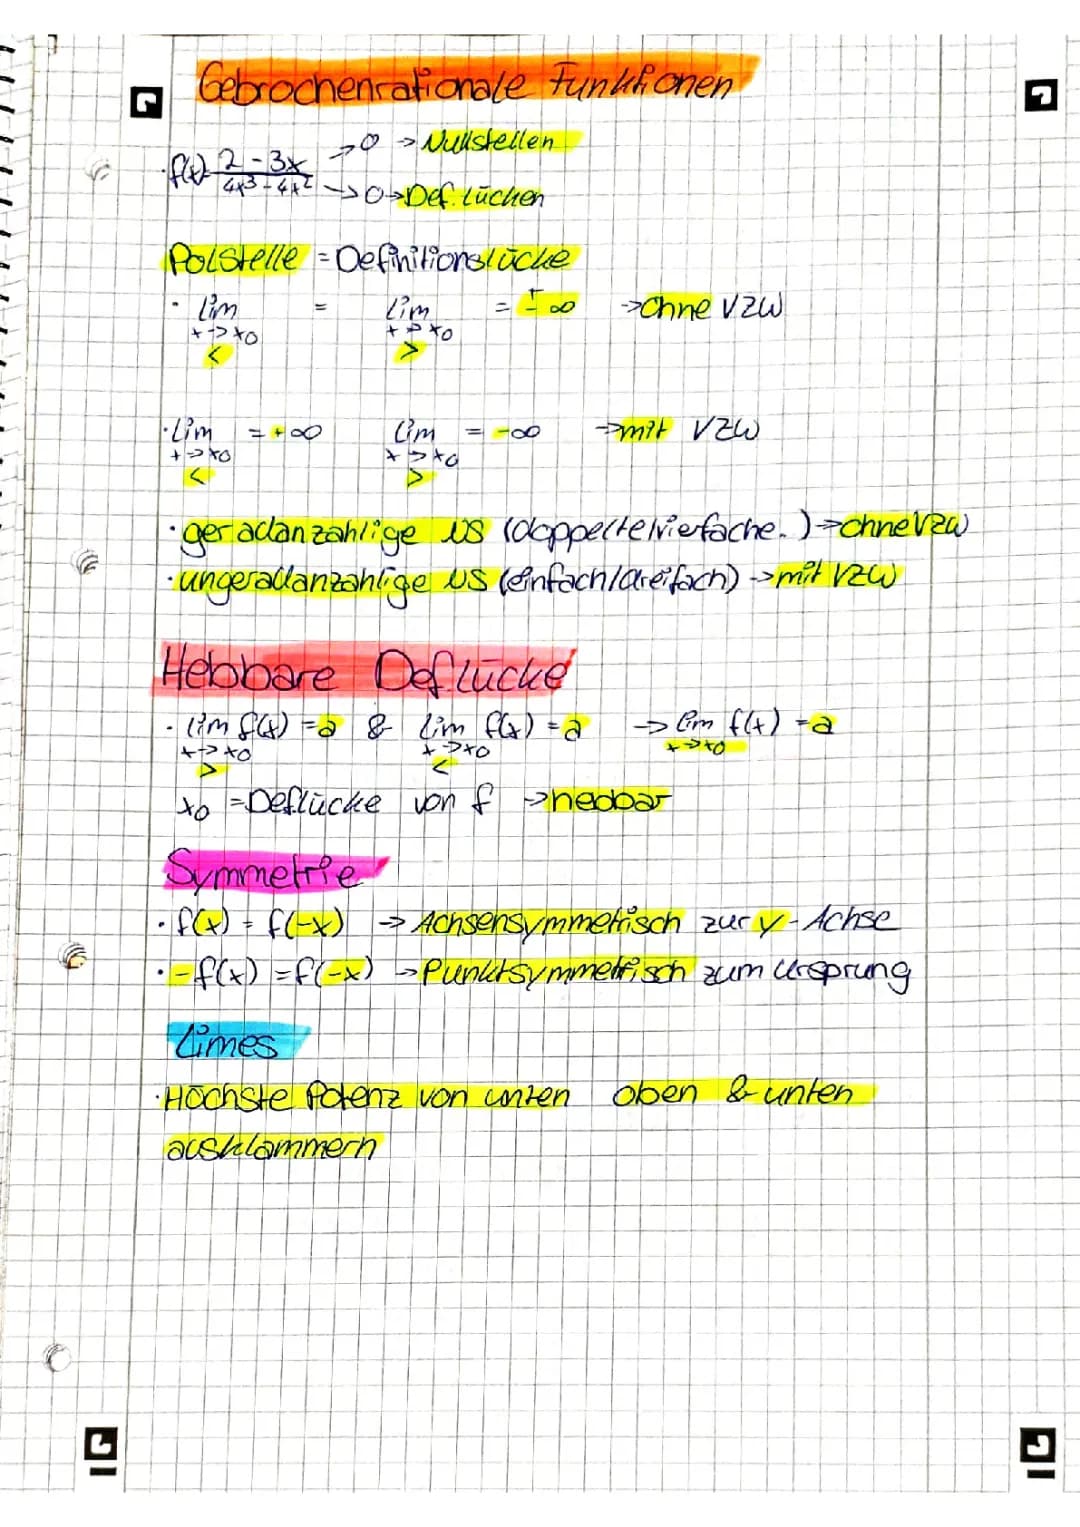 Gebrochenrationale Funktionen
· f(x) = (2 - 3x)/(4x³ - 4x²) → 0 → Nullstellen
→ 0 → Def. lücken
Polstelle = Definitionslücke
· lim x→x0 < = lim x→x0 > = ± ∞ → Ohne VZW
· lim x→x0 < = +∞ lim x→x0 > = -∞ → mit VZW
· geradanzahlige NS (doppelte/vierfache.) → ohne VZW
· ungeradanzahlige NS (einfach/dreifach) → mit VZW
Hebbare Deflücke
· lim f(x) = a & lim f(x) = a → lim f(x) = a
x→x0 > x→x0 < x→x0
x0 = Deflücke von f → hebbar
Symmetrie
· f(x) = f(-x) → Achsensymmetrisch zur y-Achse
· -f(x) = f(-x) → Punktsymmetrisch zum Ursprung
Limes
· Höchste Potenz von unten oben & unten
ausklammern